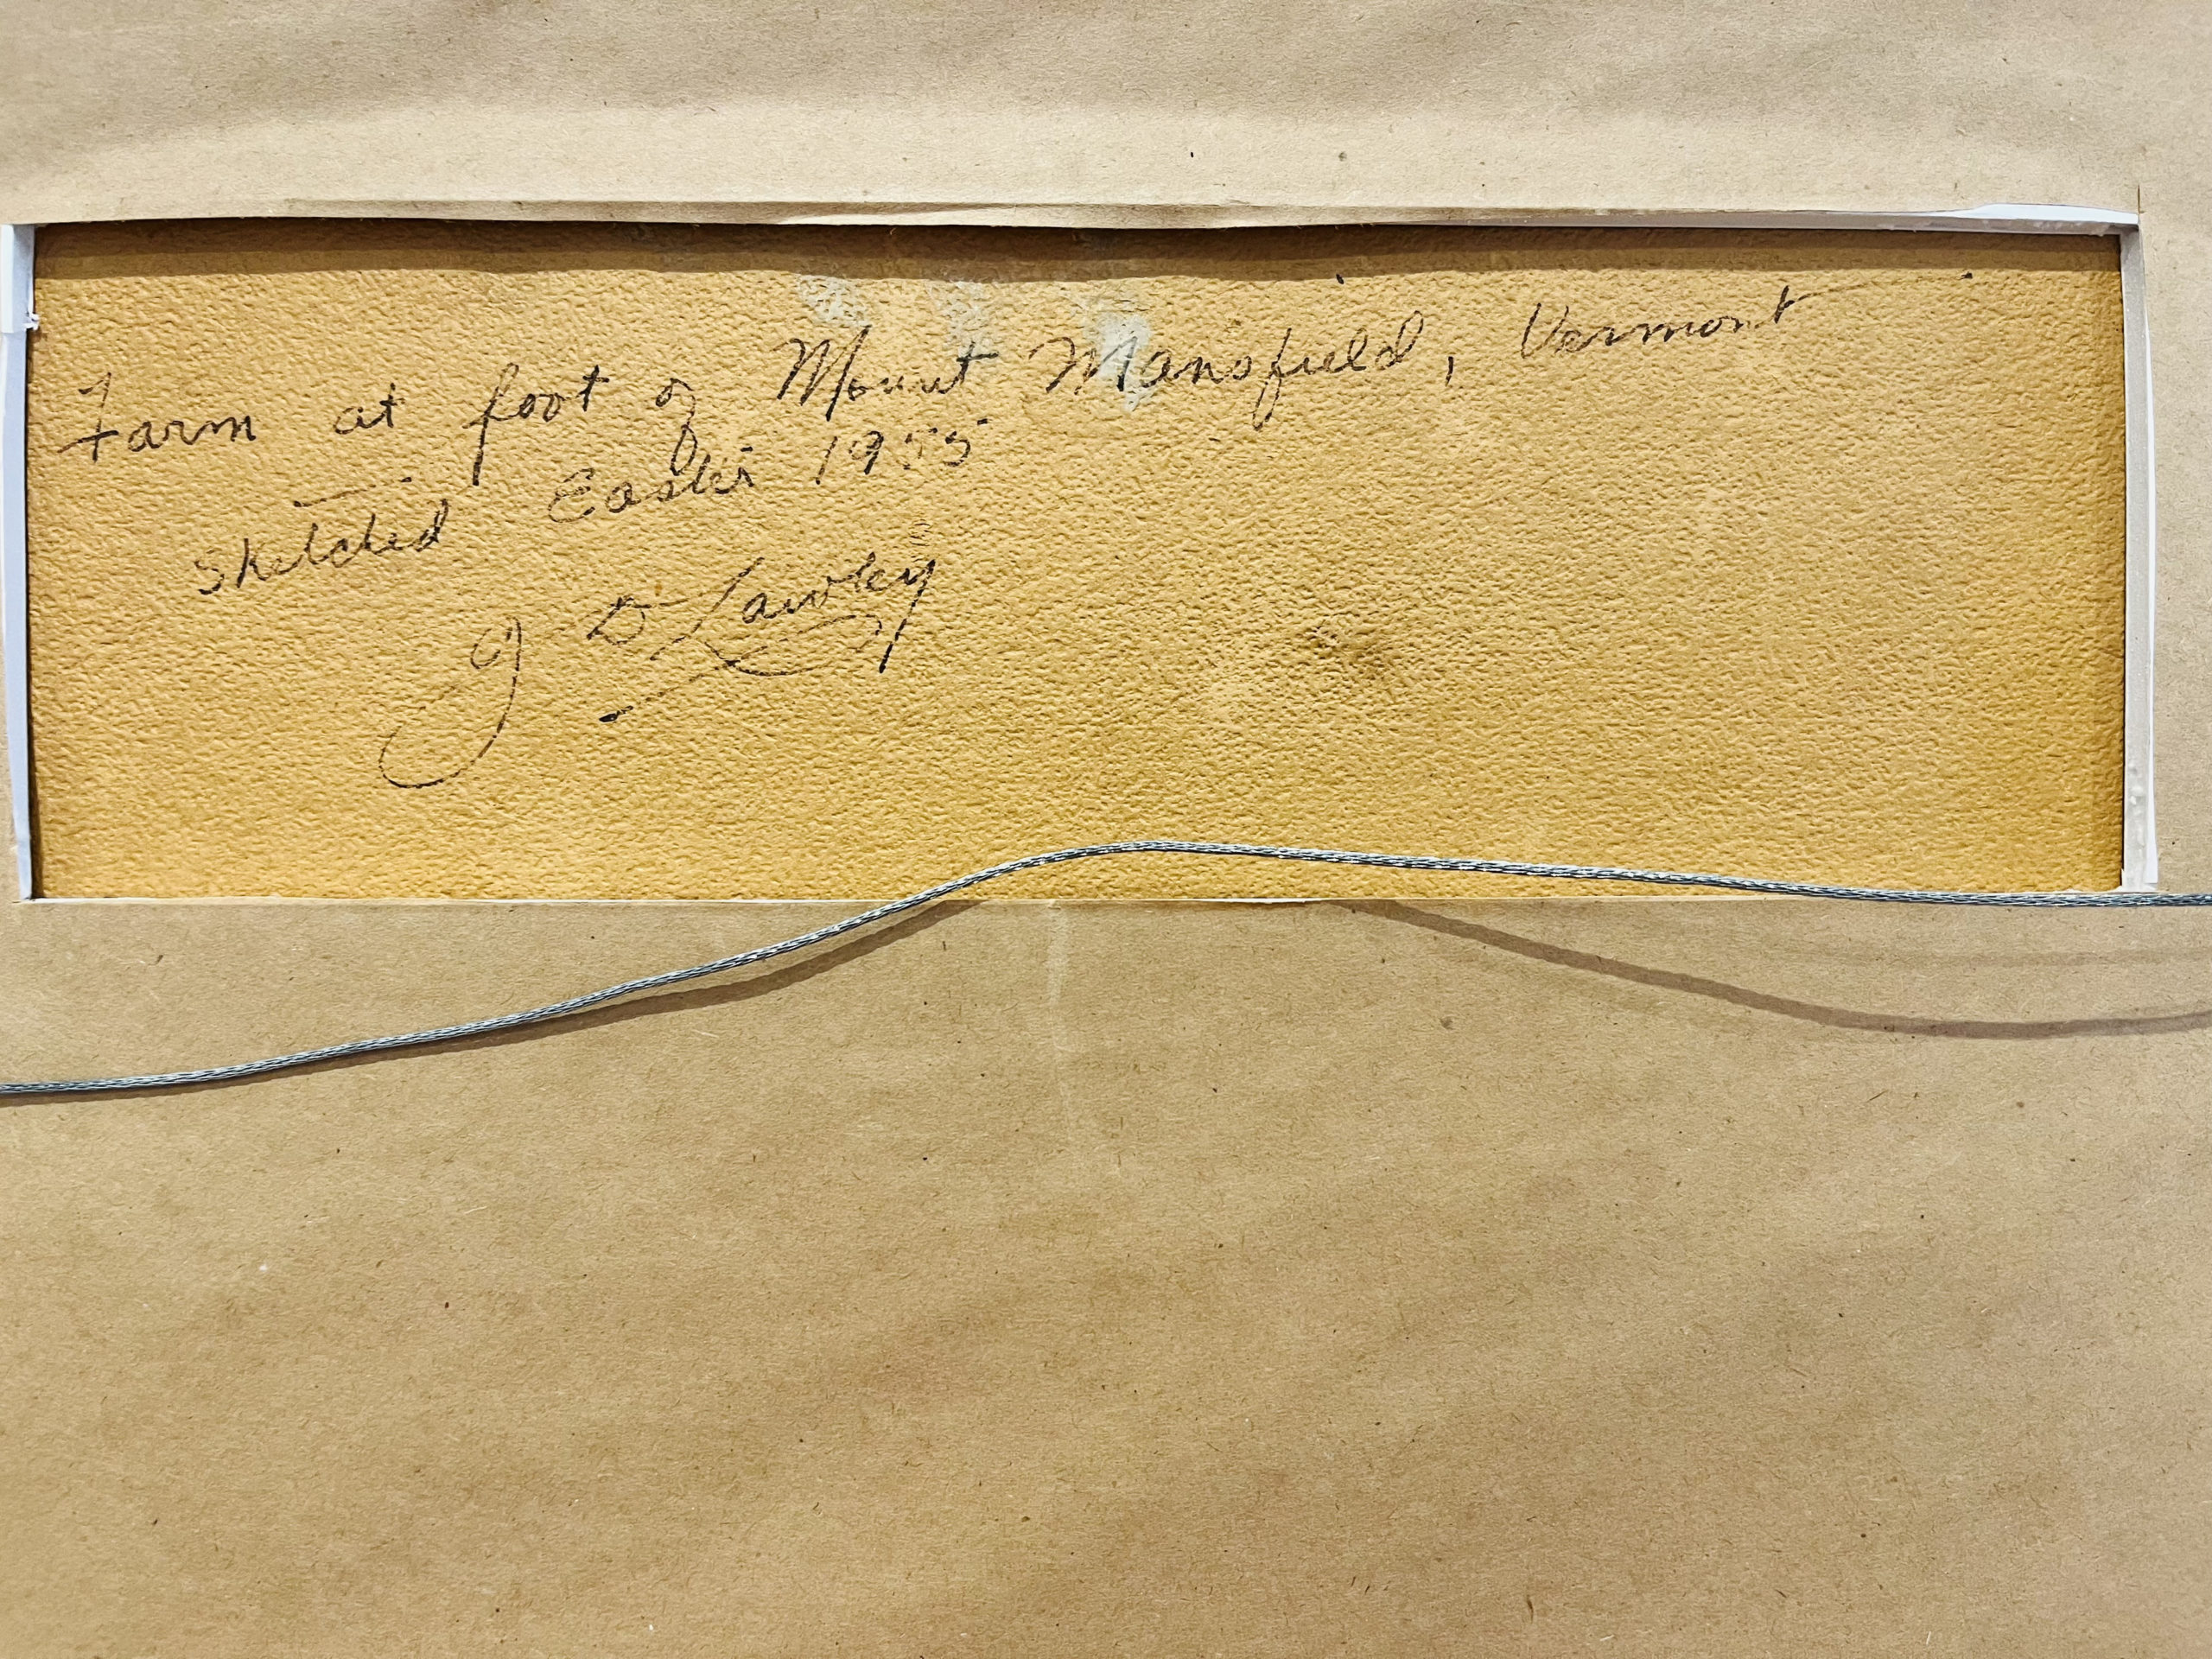 Farm at foot of Mount Mansfield, Vermont
Sketched Easter 1955
J D Lawley